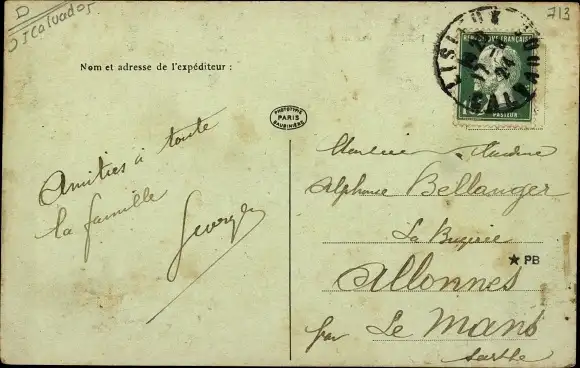 D
Calvados
713
LISIEUX
CALVADOS
RÉPUBLIQUE FRANÇAISE
PASTEUR
Nom et adresse de l'expéditeur :
PHOTOTYPE
PARIS
Amitiés à toute
la famille
Georges
Monsieur Madame
Alphonse Bellanger
La Bugerie
★ PB
Allonnes
par Le Mans
Sarthe